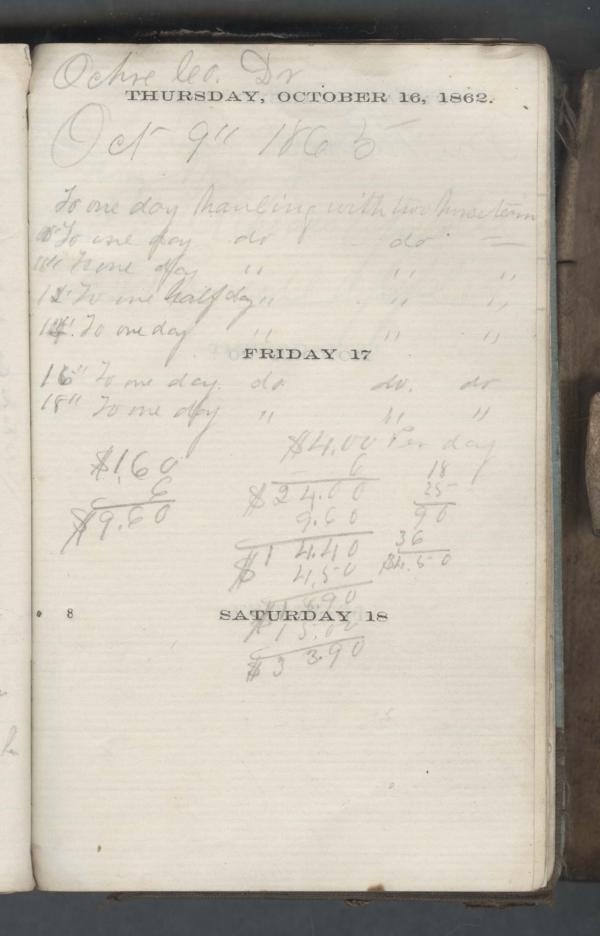 Ochre Co. Dr
THURSDAY, OCTOBER 16, 1862.
Oct 9" 1865
To one day hauling with two horse team
10" To one day do do
11" To one day " " "
12" To one half day " " "
14" To one day " " "
FRIDAY 17
16" To one day. do do. do
18" To one day " " "
$4.00 Per day
$1.60 6 18
6 $24.00 25
$9.60 9.60 90
$14.40 36
$4.50 $4.50
$18.90
8 SATURDAY 18
15.00
$33.90